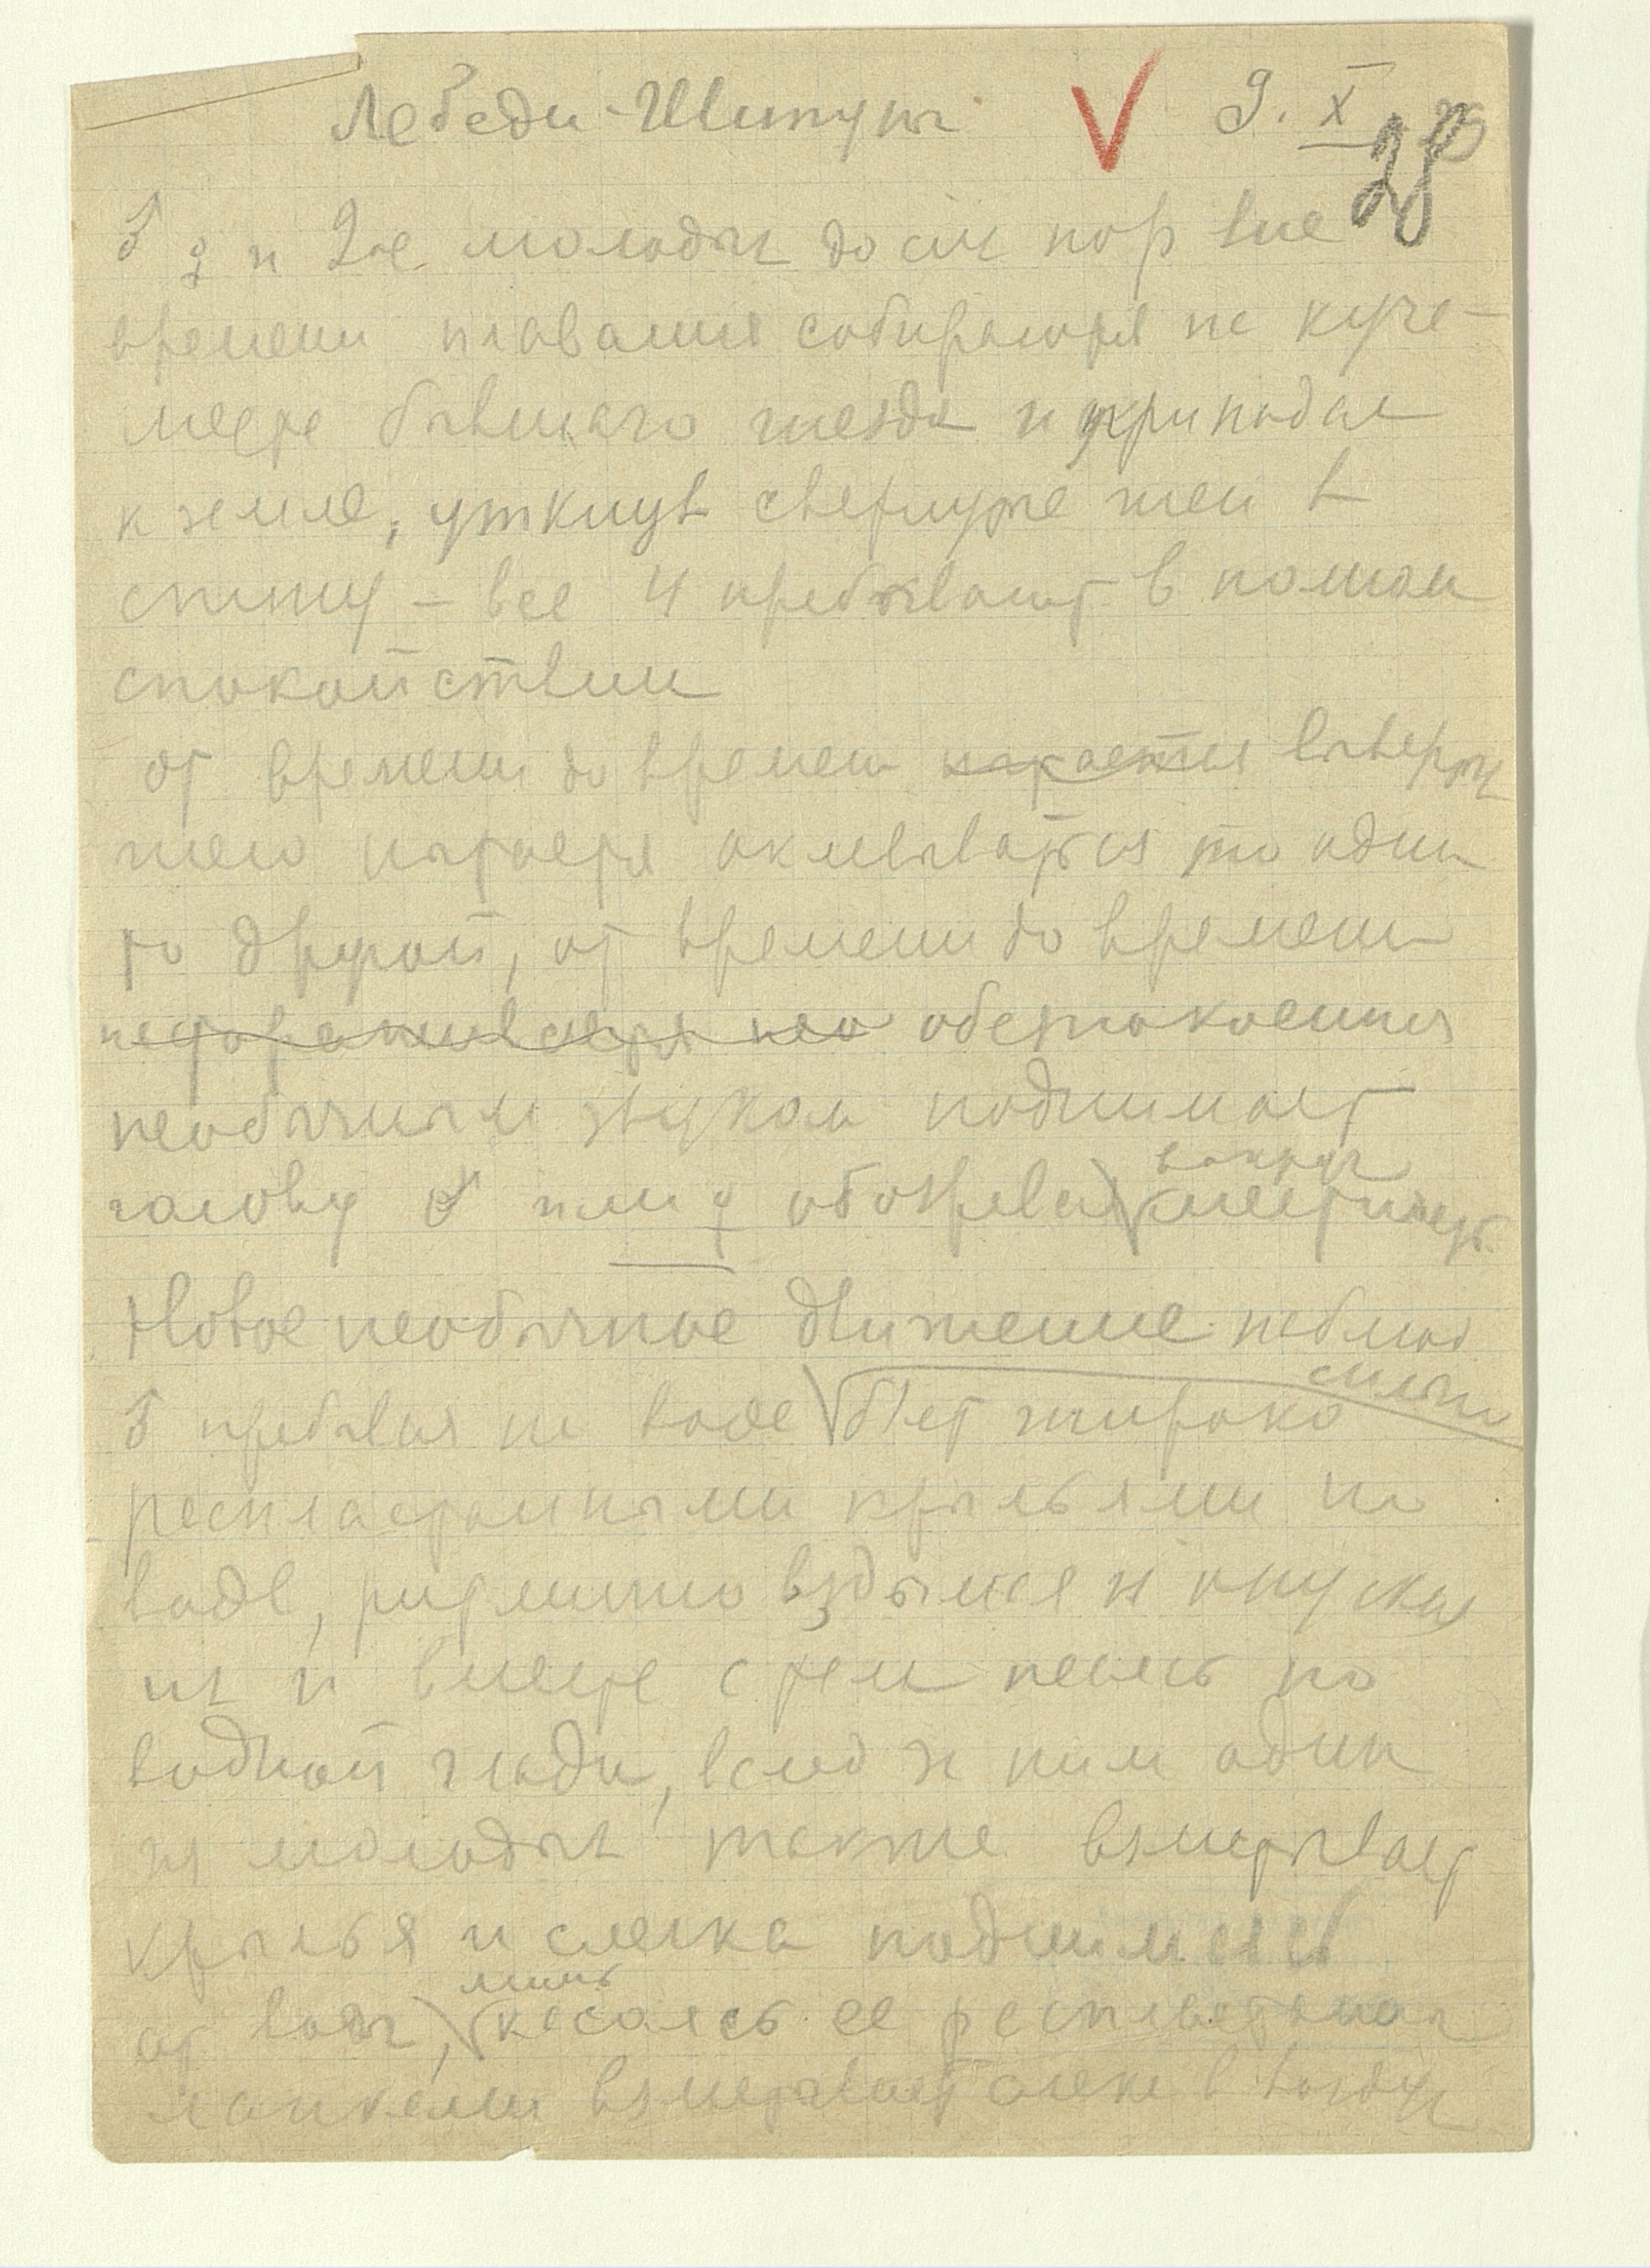 Лебеди-Шипуны 9. X 28
♂ ♀ и 2ое молодых до сих пор вне
времени плавания собираются на куче -
месте бывшего гнезда и припадая
к земле, уткнув свернутые шеи в
спину - все 4 пребывают в полном
спокойствии
от времени до времени пытается вывернуть
шею пытается оклевываться то один
то другой, от времени до времени
обеспокоенный
необычным звуком поднимает
голову ♂ или ♀ обозревая вокруг местность
Новое необычное движение наблюд
♂ пребывая на воде бьет сильно широко
распластанными крыльями по
воде, ритмично вздымая и опуская
их и вместе с тем несясь по
водной глади, вслед за ним один
из молодых также взметывает
крылья и слегка поднимаясь
от воды, лишь касаясь ее распластанными
лапками взметывает слегка в воздух